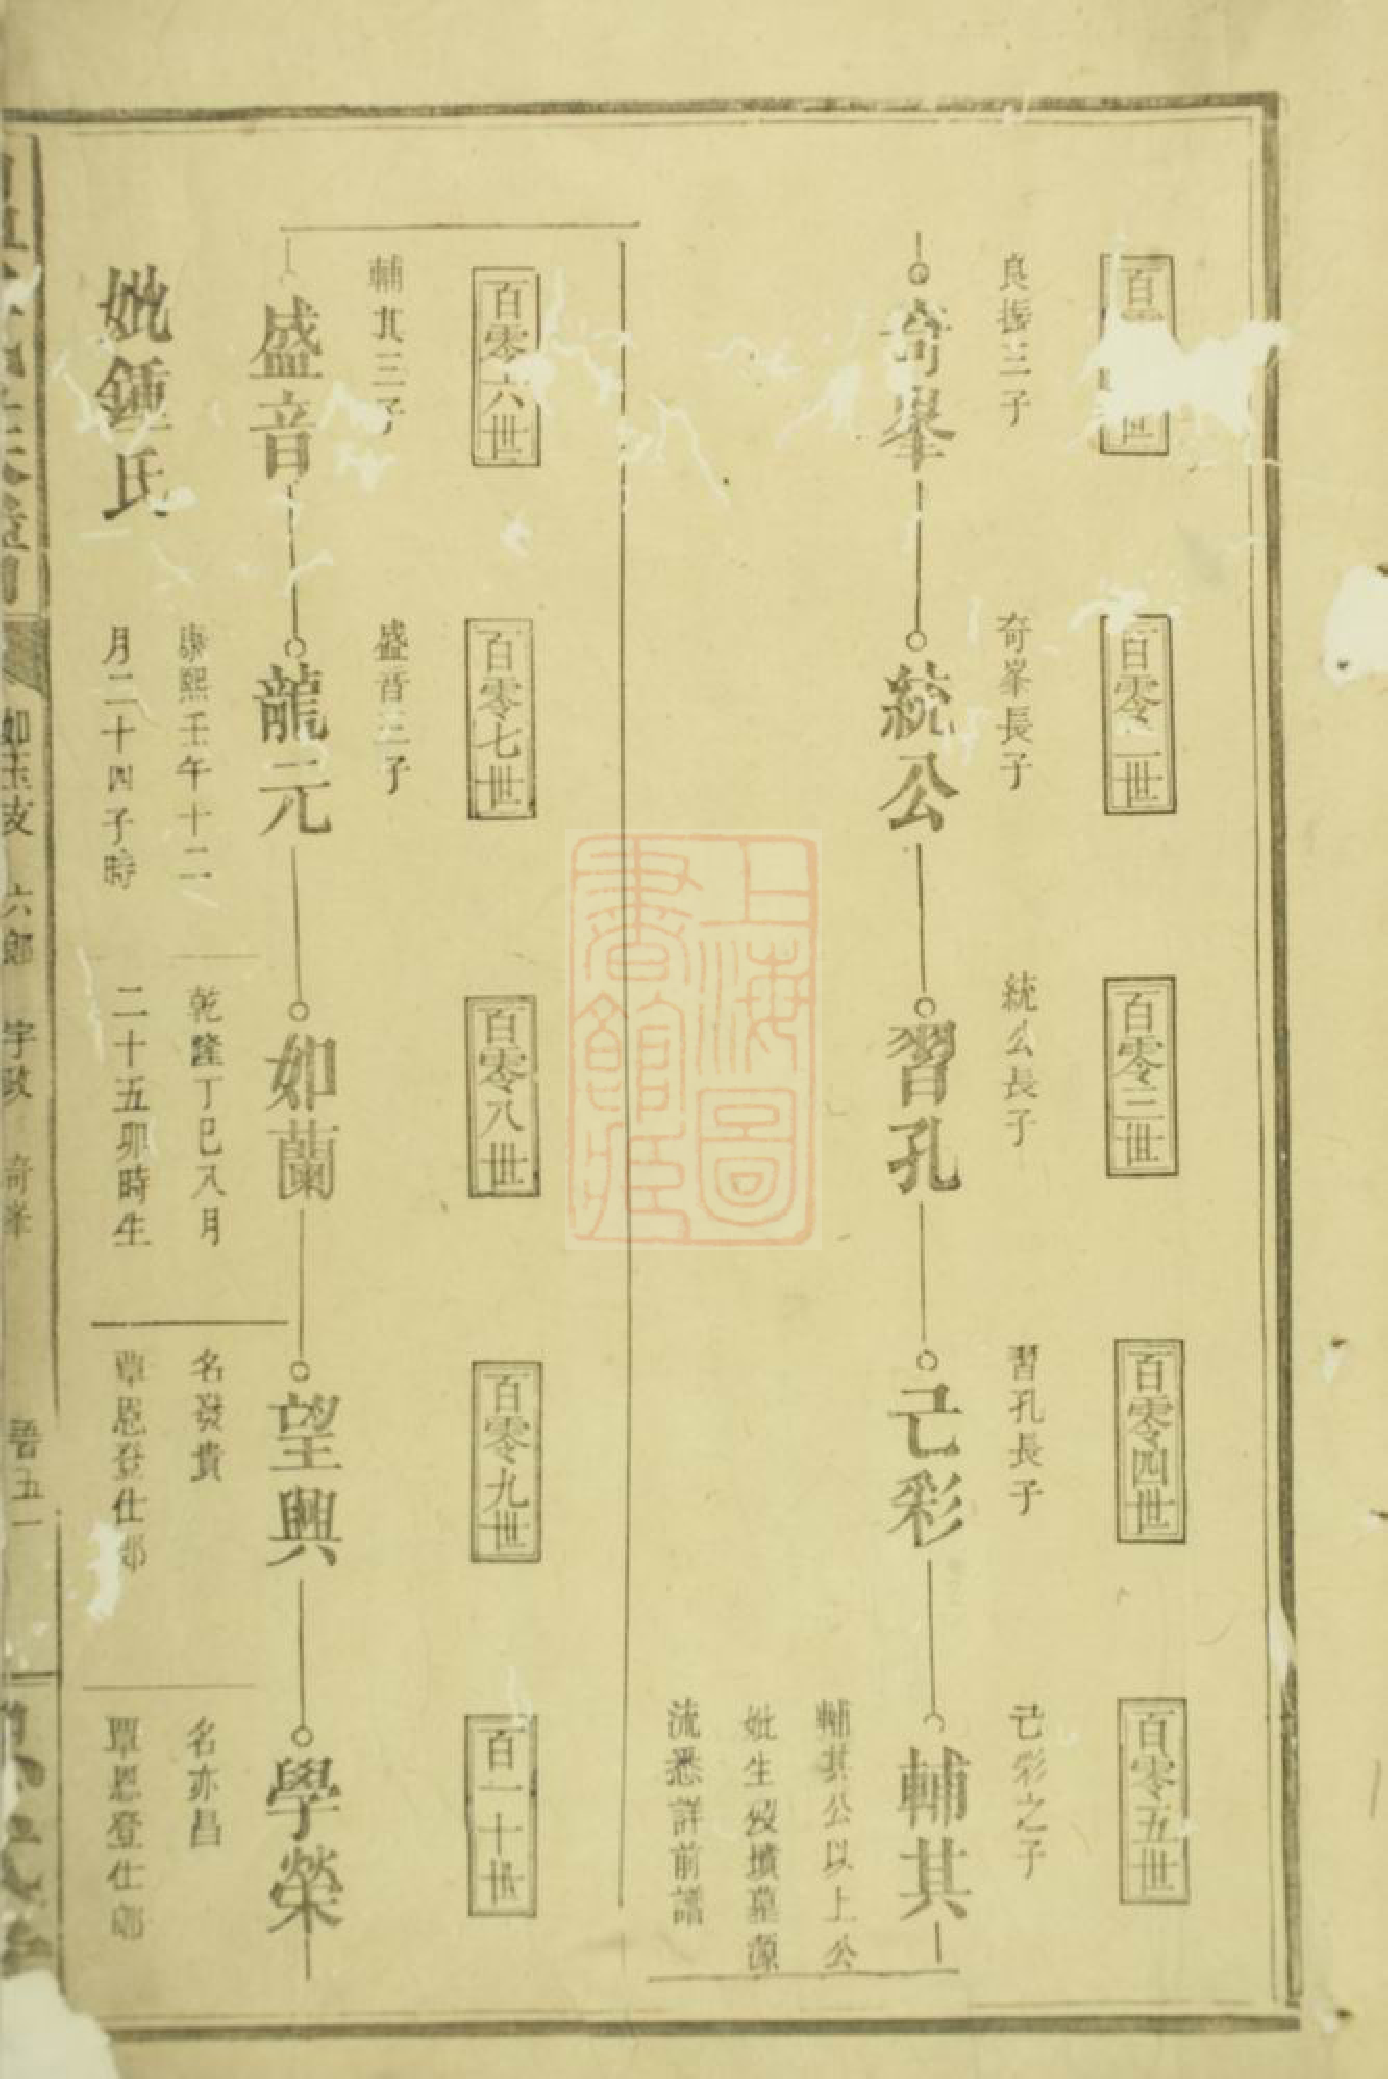 百世
百零二世
百零三世
百零四世
百零五世
良振三子
奇峯長子
統公長子
習孔長子
已彩之子
奇峯
統公
習孔
已彩
輔其
輔其公以上公
妣生歿墳墓源
流悉詳前譜
上海圖
書館藏
百零六世
百零七世
百零八世
百零九世
百一十世
輔其三子
盛音三子
盛音
龍元
如蘭
望興
學榮
康熙壬午十二
月二十四子時
乾隆丁巳八月
二十五卯時生
名發貴
覃恩登仕郎
名亦昌
覃恩登仕郎
妣鍾氏
如玉支 六郎 宇政 奇峯
吾五一